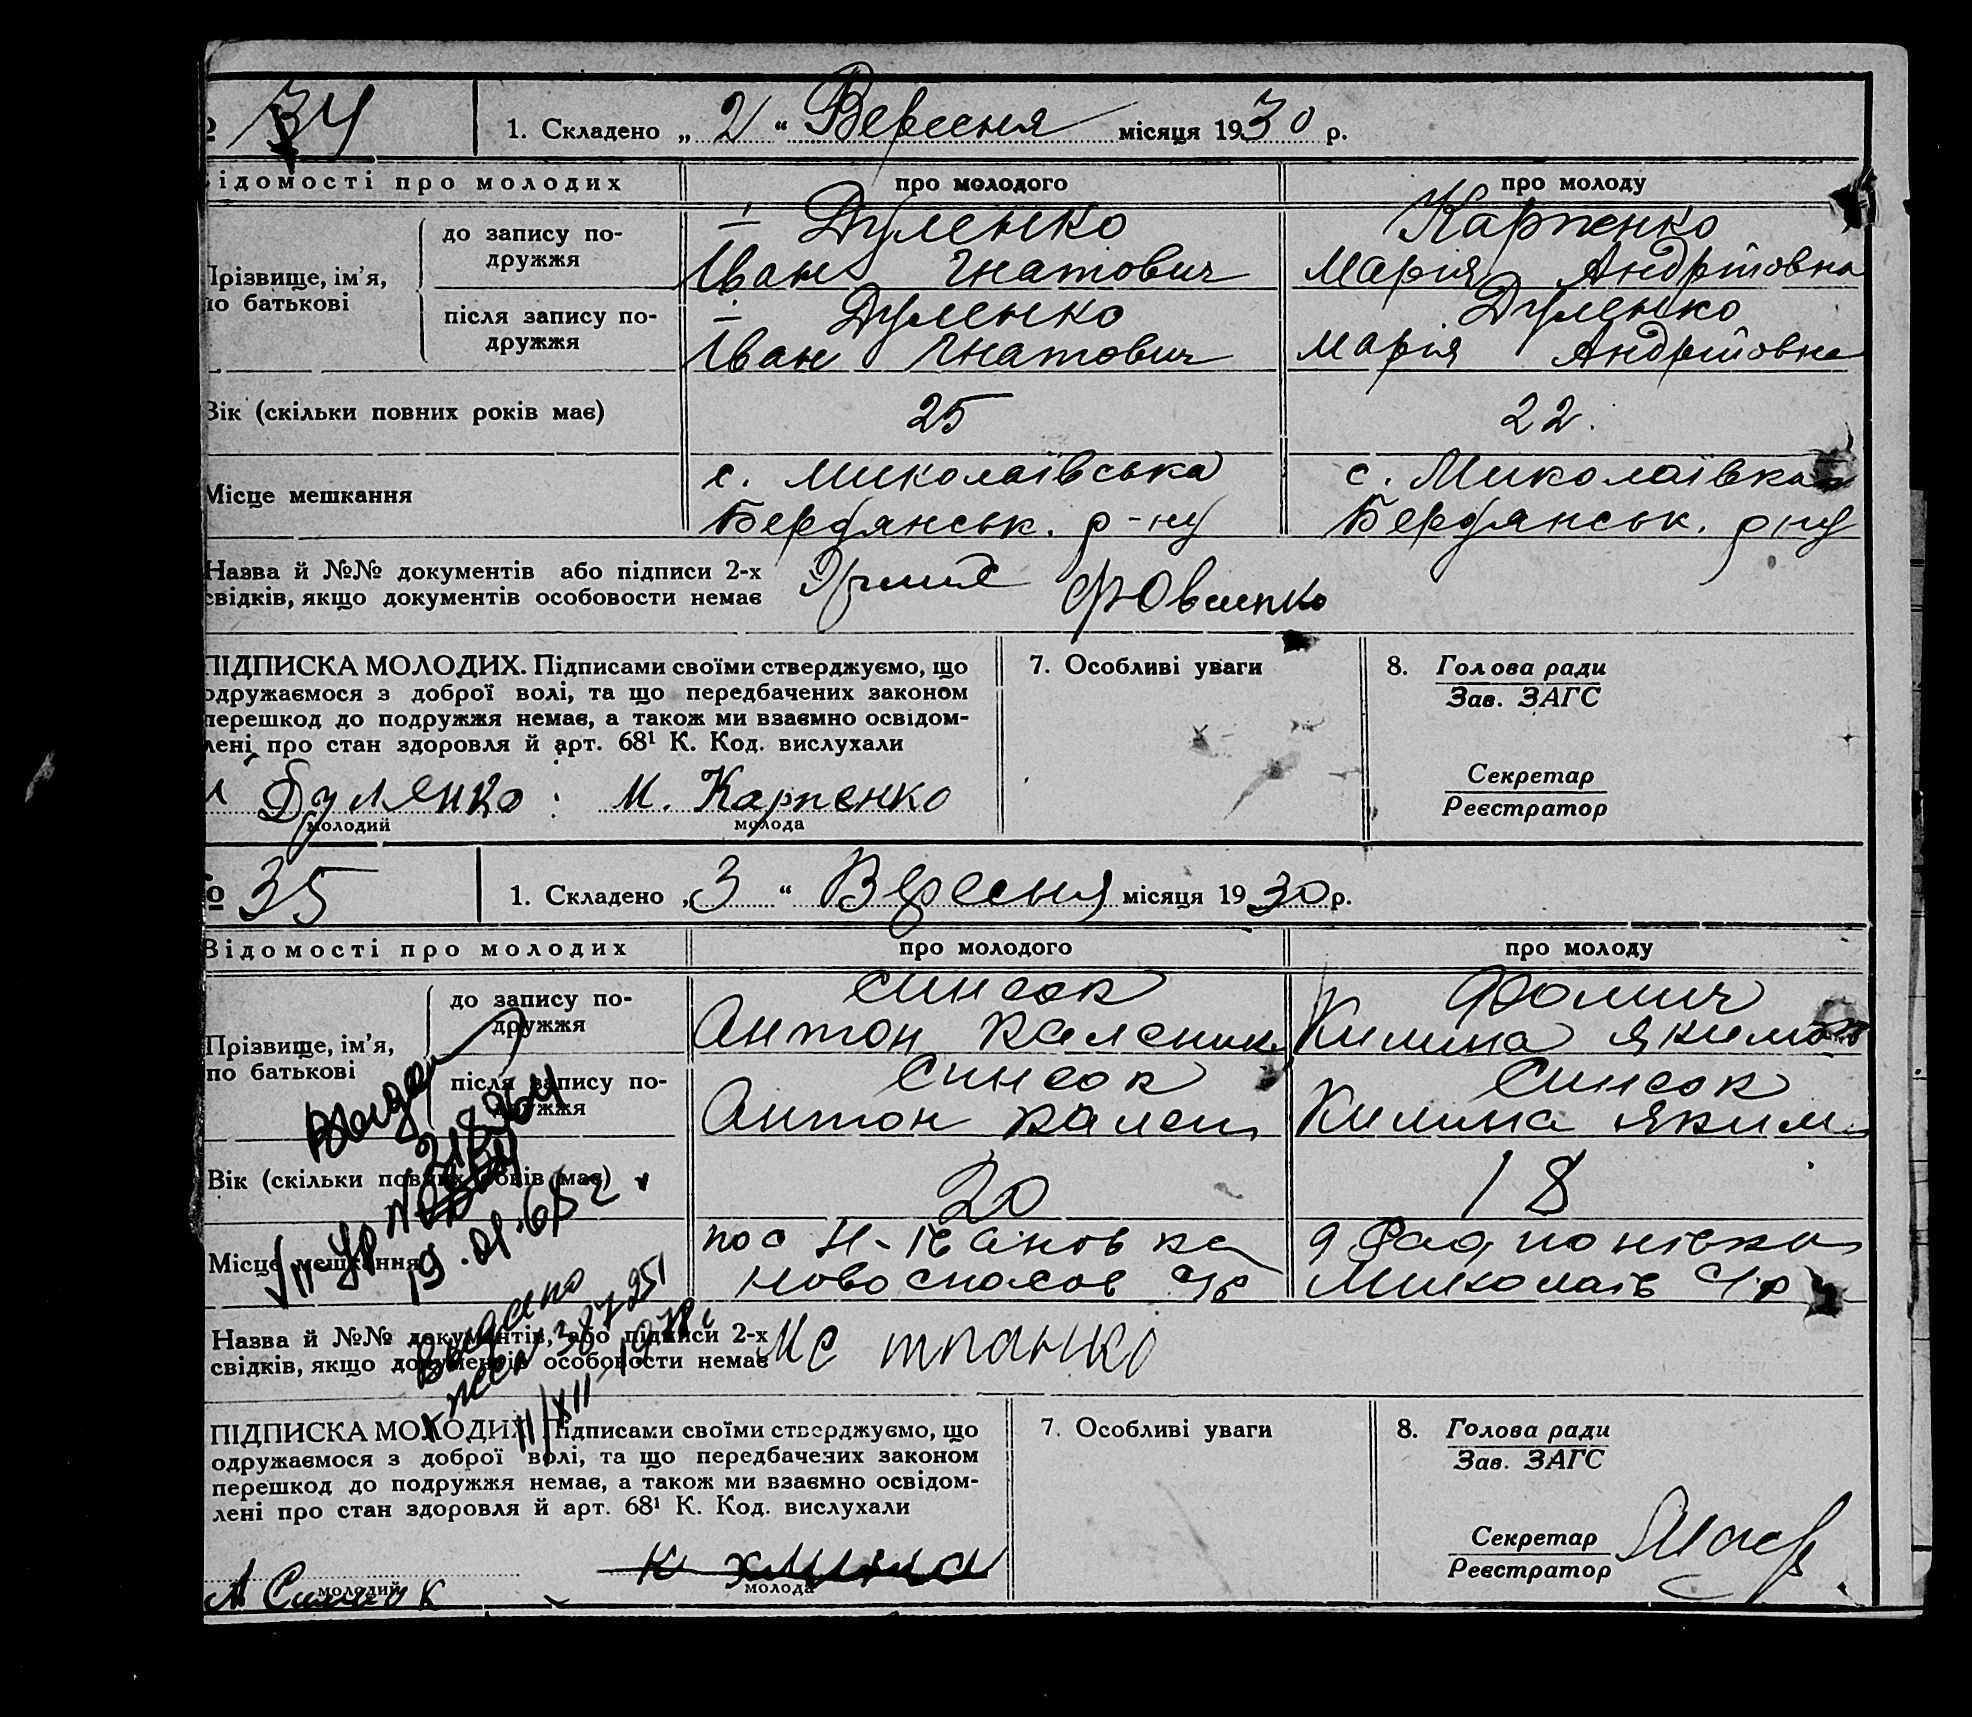 34
1. Складено „ 2 “ Вересня місяця 1930 р.
ідомості про молодих
про молодого
про молоду
Прізвище, ім’я,
по батькові
до запису по-
дружжя
Дуленко
Іван Гнатович
Карпенко
Марія Андріїовна
після запису по-
дружжя
Дуленко
Іван Гнатович
Дуленко
Марія Андріїовна
Вік (скільки повних років має)
25
22.
Місце мешкання
с. Миколаївська
Бердянськ. р-ну
с. Миколаївка
Бердянськ. рну
Назва й №№ документів або підписи 2-х
свідків, якщо документів особовости немає
ФОвсиенко
ПІДПИСКА МОЛОДИХ. Підписами своїми стверджуємо, що
одружаємося з доброї волі, та що передбачених законом
перешкод до подружжя немає, а також ми взаємно освідом-
лені про стан здоровля й арт. 68¹ К. Код. вислухали
Дуленко
молодий
М. Карпенко
молода
7. Особливі уваги
8. Голова ради
Зав. ЗАГС
Секретар
Реєстратор
№ 35
1. Складено „ 3 “ Вересня місяця 1930 р.
Відомості про молодих
про молодого
про молоду
Прізвище, ім’я,
по батькові
до запису по-
дружжя
Синсок
Антон Каленик
Фомич
Килина Якимов
після запису по-
дружжя
Синсок
Антон Кален
Синсок
Килина Яким
Вік (скільки повних років має)
20
18
Місце мешкання
пос Н-Івановка
Новоспасов с/р
Миколаїв с/р
19.01.65г.
Выдано
387251
11/XII-1978г
Назва й №№ документів, або підписи 2-х
свідків, якщо документів особовости немає
ПІДПИСКА МОЛОДИХ. Підписами своїми стверджуємо, що
одружаємося з доброї волі, та що передбачених законом
перешкод до подружжя немає, а також ми взаємно освідом-
лені про стан здоровля й арт. 68¹ К. Код. вислухали
А Синсок
молодий
молода
7. Особливі уваги
8. Голова ради
Зав. ЗАГС
Секретар
Реєстратор